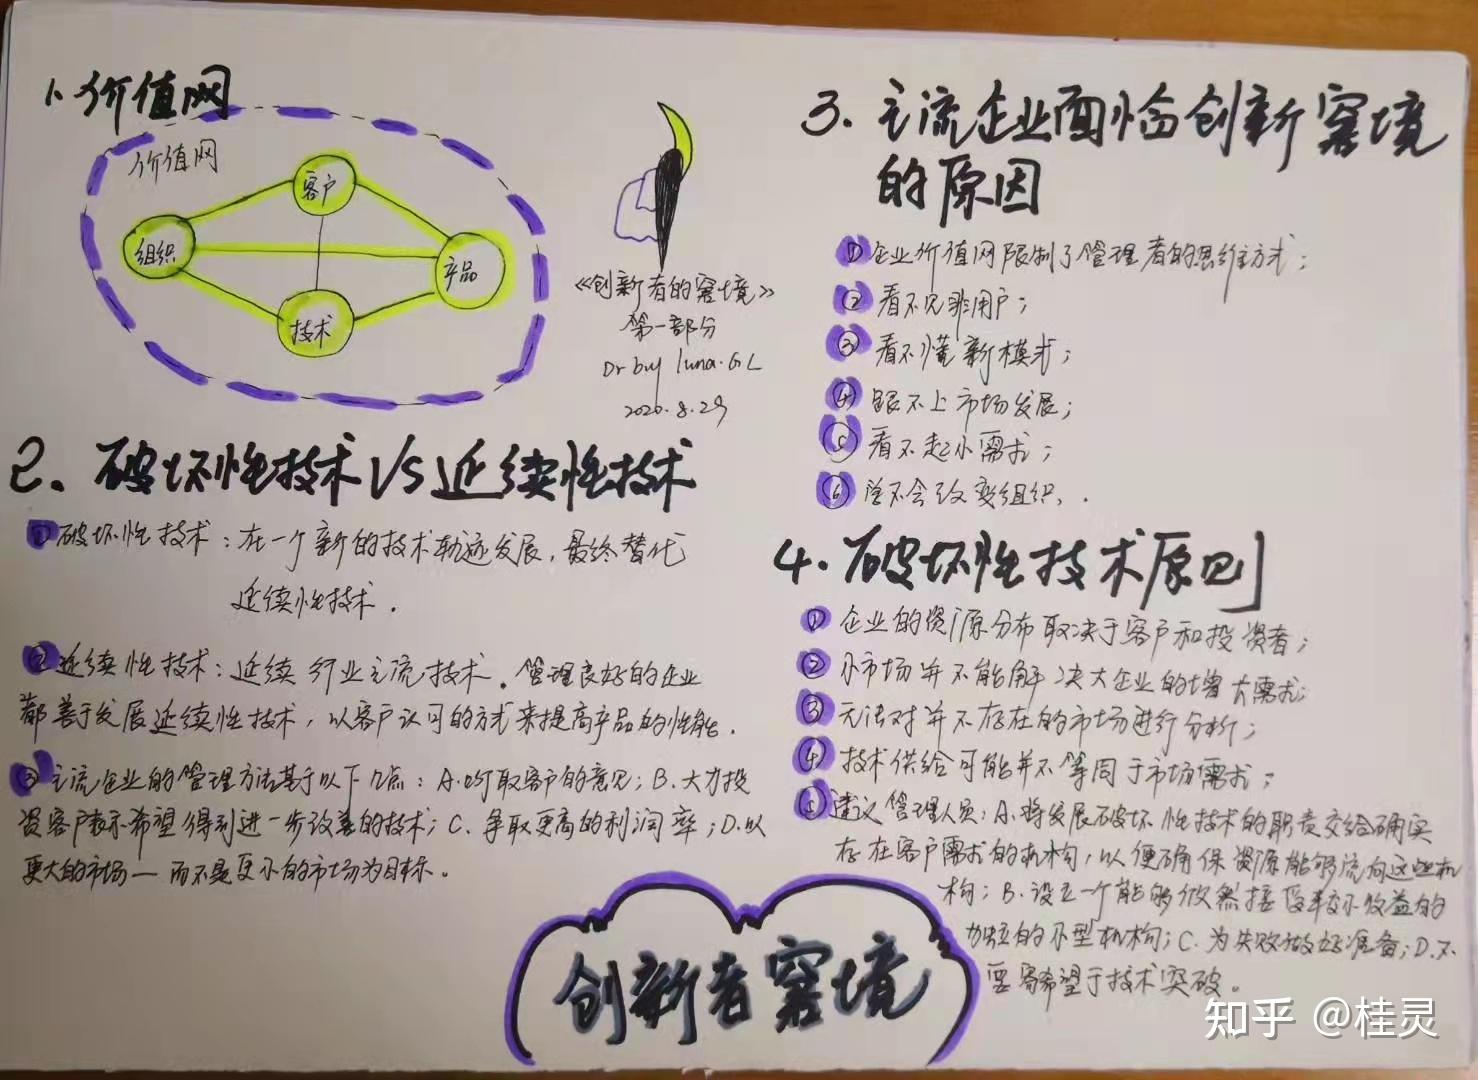 1、价值网
价值网
客户
组织
产品
技术
《创新者的窘境》
第一部分
Dr buy luna.GL
2020.8.29
2、破坏性技术VS延续性技术
①破坏性技术：在一个新的技术轨迹发展，最终替代
延续性技术．
②延续性技术：延续行业主流技术．管理良好的企业
都善于发展延续性技术，以客户认可的方式来提高产品的性能．
③主流企业的管理方法基于以下几点：A.听取客户的意见；B.大力投
资客户表示希望得到进一步改善的技术；C.争取更高的利润率；D.以
更大的市场—而不是更小的市场为目标．
3、主流企业面临创新窘境
的原因
①企业价值网限制了管理者的思维方式；
②看不见非用户；
③看不懂新模式；
④跟不上市场发展；
⑤看不起小需求；
⑥学不会改变组织．
4．破坏性技术原则
①企业的资源分布取决于客户和投资者；
②小市场并不能解决大企业的增大需求；
③无法对并不存在的市场进行分析；
④技术供给可能并不等同于市场需求；
⑤建议管理人员：A.将发展破坏性技术的职责交给确实
存在客户需求的机构，以便确保资源能够流向这些机
构；B.设立一个能够欣然接受较小收益的
独立的小型机构；C.为失败做好准备；D.不
要寄希望于技术突破。
创新者窘境
知乎 @桂灵